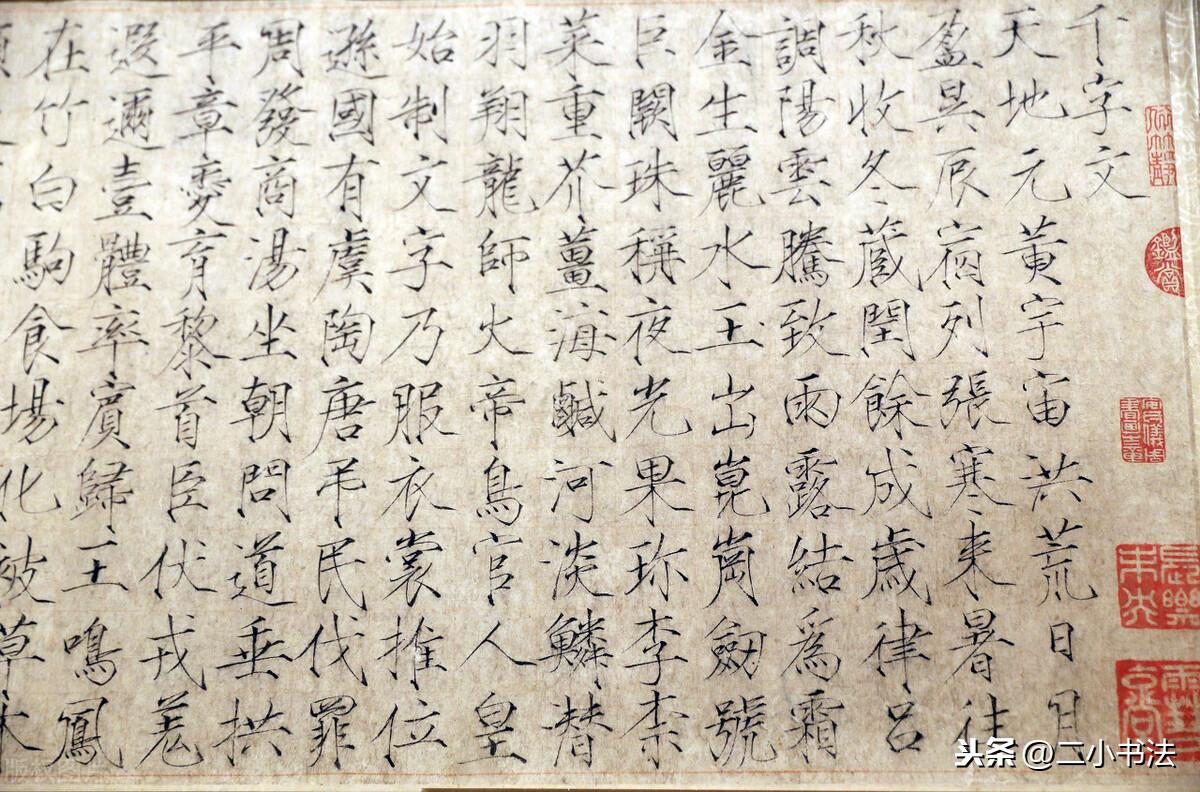 千字文
天地元黄宇宙洪荒日月
盈昃辰宿列張寒来暑往
秋收冬蔵閏餘成歲律呂
調陽雲騰致雨露結爲霜
金生麗水玉出崑崗劒號
巨闕珠稱夜光果珎李柰
菜重芥薑海鹹河淡鱗潜
羽翔龍師火帝鳥官人皇
始制文字乃服衣裳推位
遜國有虞陶唐弔民伐罪
周發商湯坐朝問道垂拱
平章愛育黎首臣伏戎羌
遐邇壹體率賓歸王鳴鳳
在竹白駒食場化被草木
鑑賞
头条 @二小书法